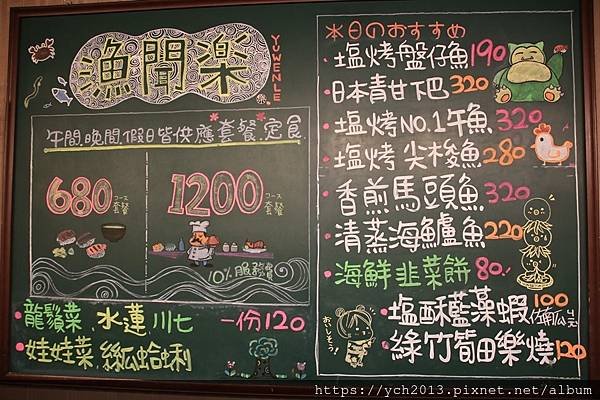 漁聞楽
YUWENLE
午間.晚間.假日皆供應套餐.定食
680 コース 套餐
1200 コース 套餐
10%服務費
•龍鬚菜、水蓮 川七 一份120
•娃娃菜、絲瓜蛤蜊
本日のおすすめ
•塩烤盤仔魚190
•日本青甘下巴320
•塩烤NO.1午魚320
•塩烤尖梭魚280
•香煎馬頭魚320
•清蒸海鱸魚220
•海鮮韭菜餅80.
•塩酥藍藻蝦100
•綠竹筍田樂燒120
おいしそう!
https://ych2013.pixnet.net/album